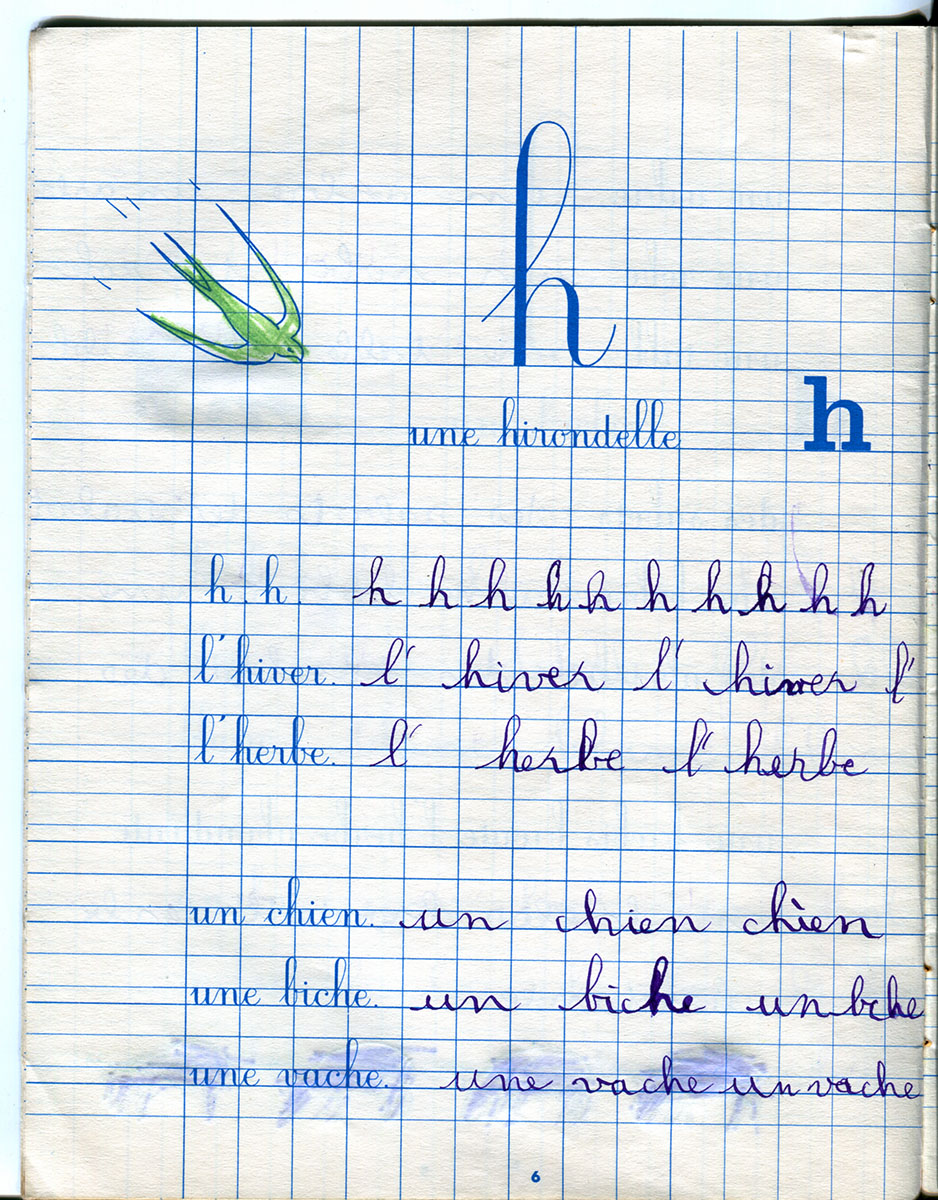 h
h
une hirondelle
h. h. h h h h h h h h h h
l'hiver. l' hiver l' hiver l'
l'herbe. l' herbe l' herbe
un chien. un chien chien
une biche. un biche un bche
une vache. une vache un vache
6